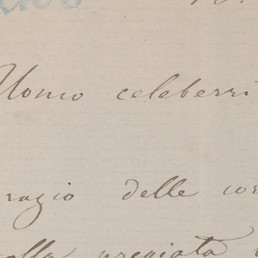 Uomo celeberri
razio delle cor
alla pregiata